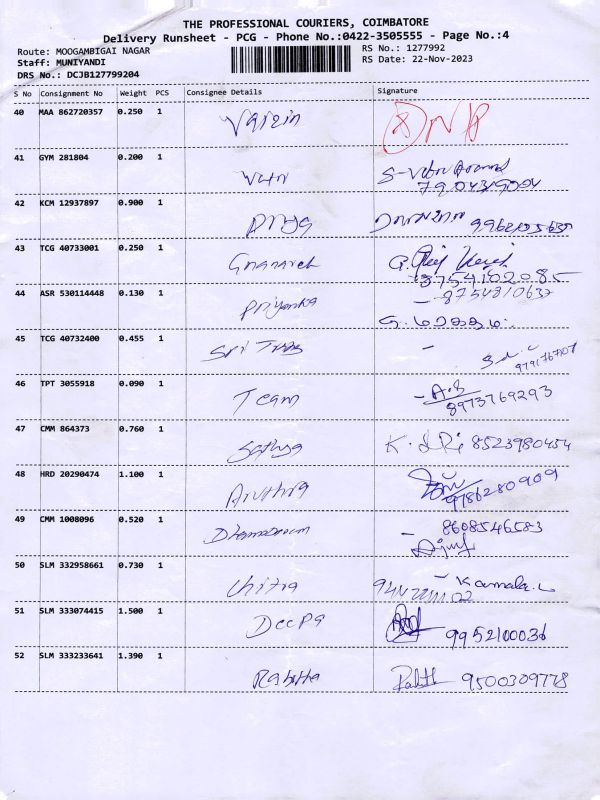 THE PROFESSIONAL COURIERS, COIMBATORE
Delivery Runsheet - PCG - Phone No.:0422-3505555 - Page No.:4
Route: MOOGAMBIGAI NAGAR
Staff: MUNIYANDI
DRS No.: DCJB127799204
RS No.: 1277992
RS Date: 22-Nov-2023
S No Consignment No Weight PCS Consignee Details Signature
40 MAA 862720357 0.250 1
41 GYM 281804 0.200 1 7904319004
42 KCM 12937897 0.900 1
43 TCG 40733001 0.250 1 8754102085
44 ASR 530114448 0.130 1 Priyanka 8754810637
45 TCG 40732400 0.455 1 Sri
46 TPT 3055918 0.090 1 Team A.S 8973769293
47 CMM 864373 0.760 1 Sathya 8523980454
48 HRD 20290474 1.100 1 9786280909
49 CMM 1008096 0.520 1 8608546583
50 SLM 332958661 0.730 1 Chitra Kamala
51 SLM 333074415 1.500 1 Deepa 9952100036
52 SLM 333233641 1.390 1 9500309778